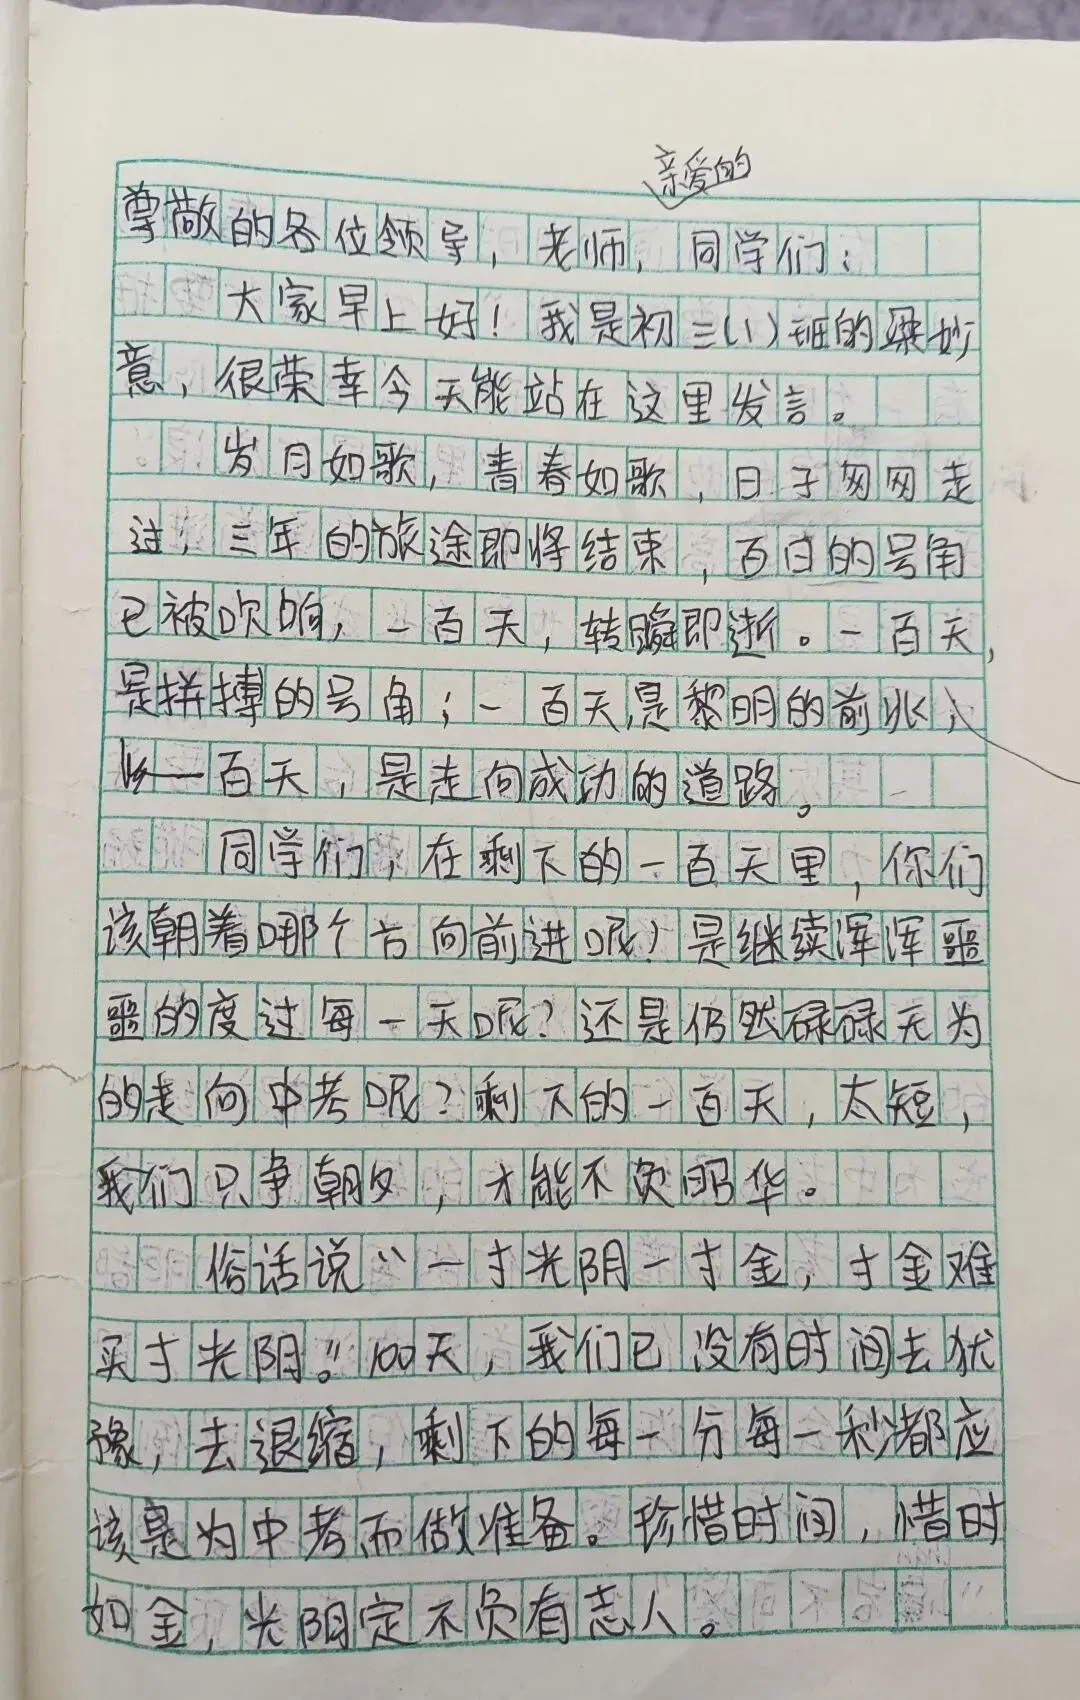 亲爱的
尊敬的各位领导,老师,同学们:
大家早上好!我是初三(1)班的梁妙
意,很荣幸今天能站在这里发言。
岁月如歌,青春如歌,日子匆匆走
过,三年的旅途即将结束,百日的号角
已被吹响,一百天,转瞬即逝。一百天,
是拼搏的号角;一百天,是黎明的前兆;
一百天,是走向成功的道路。
同学们,在剩下的一百天里,你们
该朝着哪个方向前进呢?是继续浑浑噩
噩的度过每一天呢?还是仍然碌碌无为
的走向中考呢?剩下的一百天,太短,
我们只争朝夕,才能不负昭华。
俗话说“一寸光阴一寸金,寸金难
买寸光阴。”100天,我们已没有时间去犹
豫,去退缩,剩下的每一分每一秒都应
该是为中考而做准备。珍惜时间,惜时
如金,光阴定不负有志人。